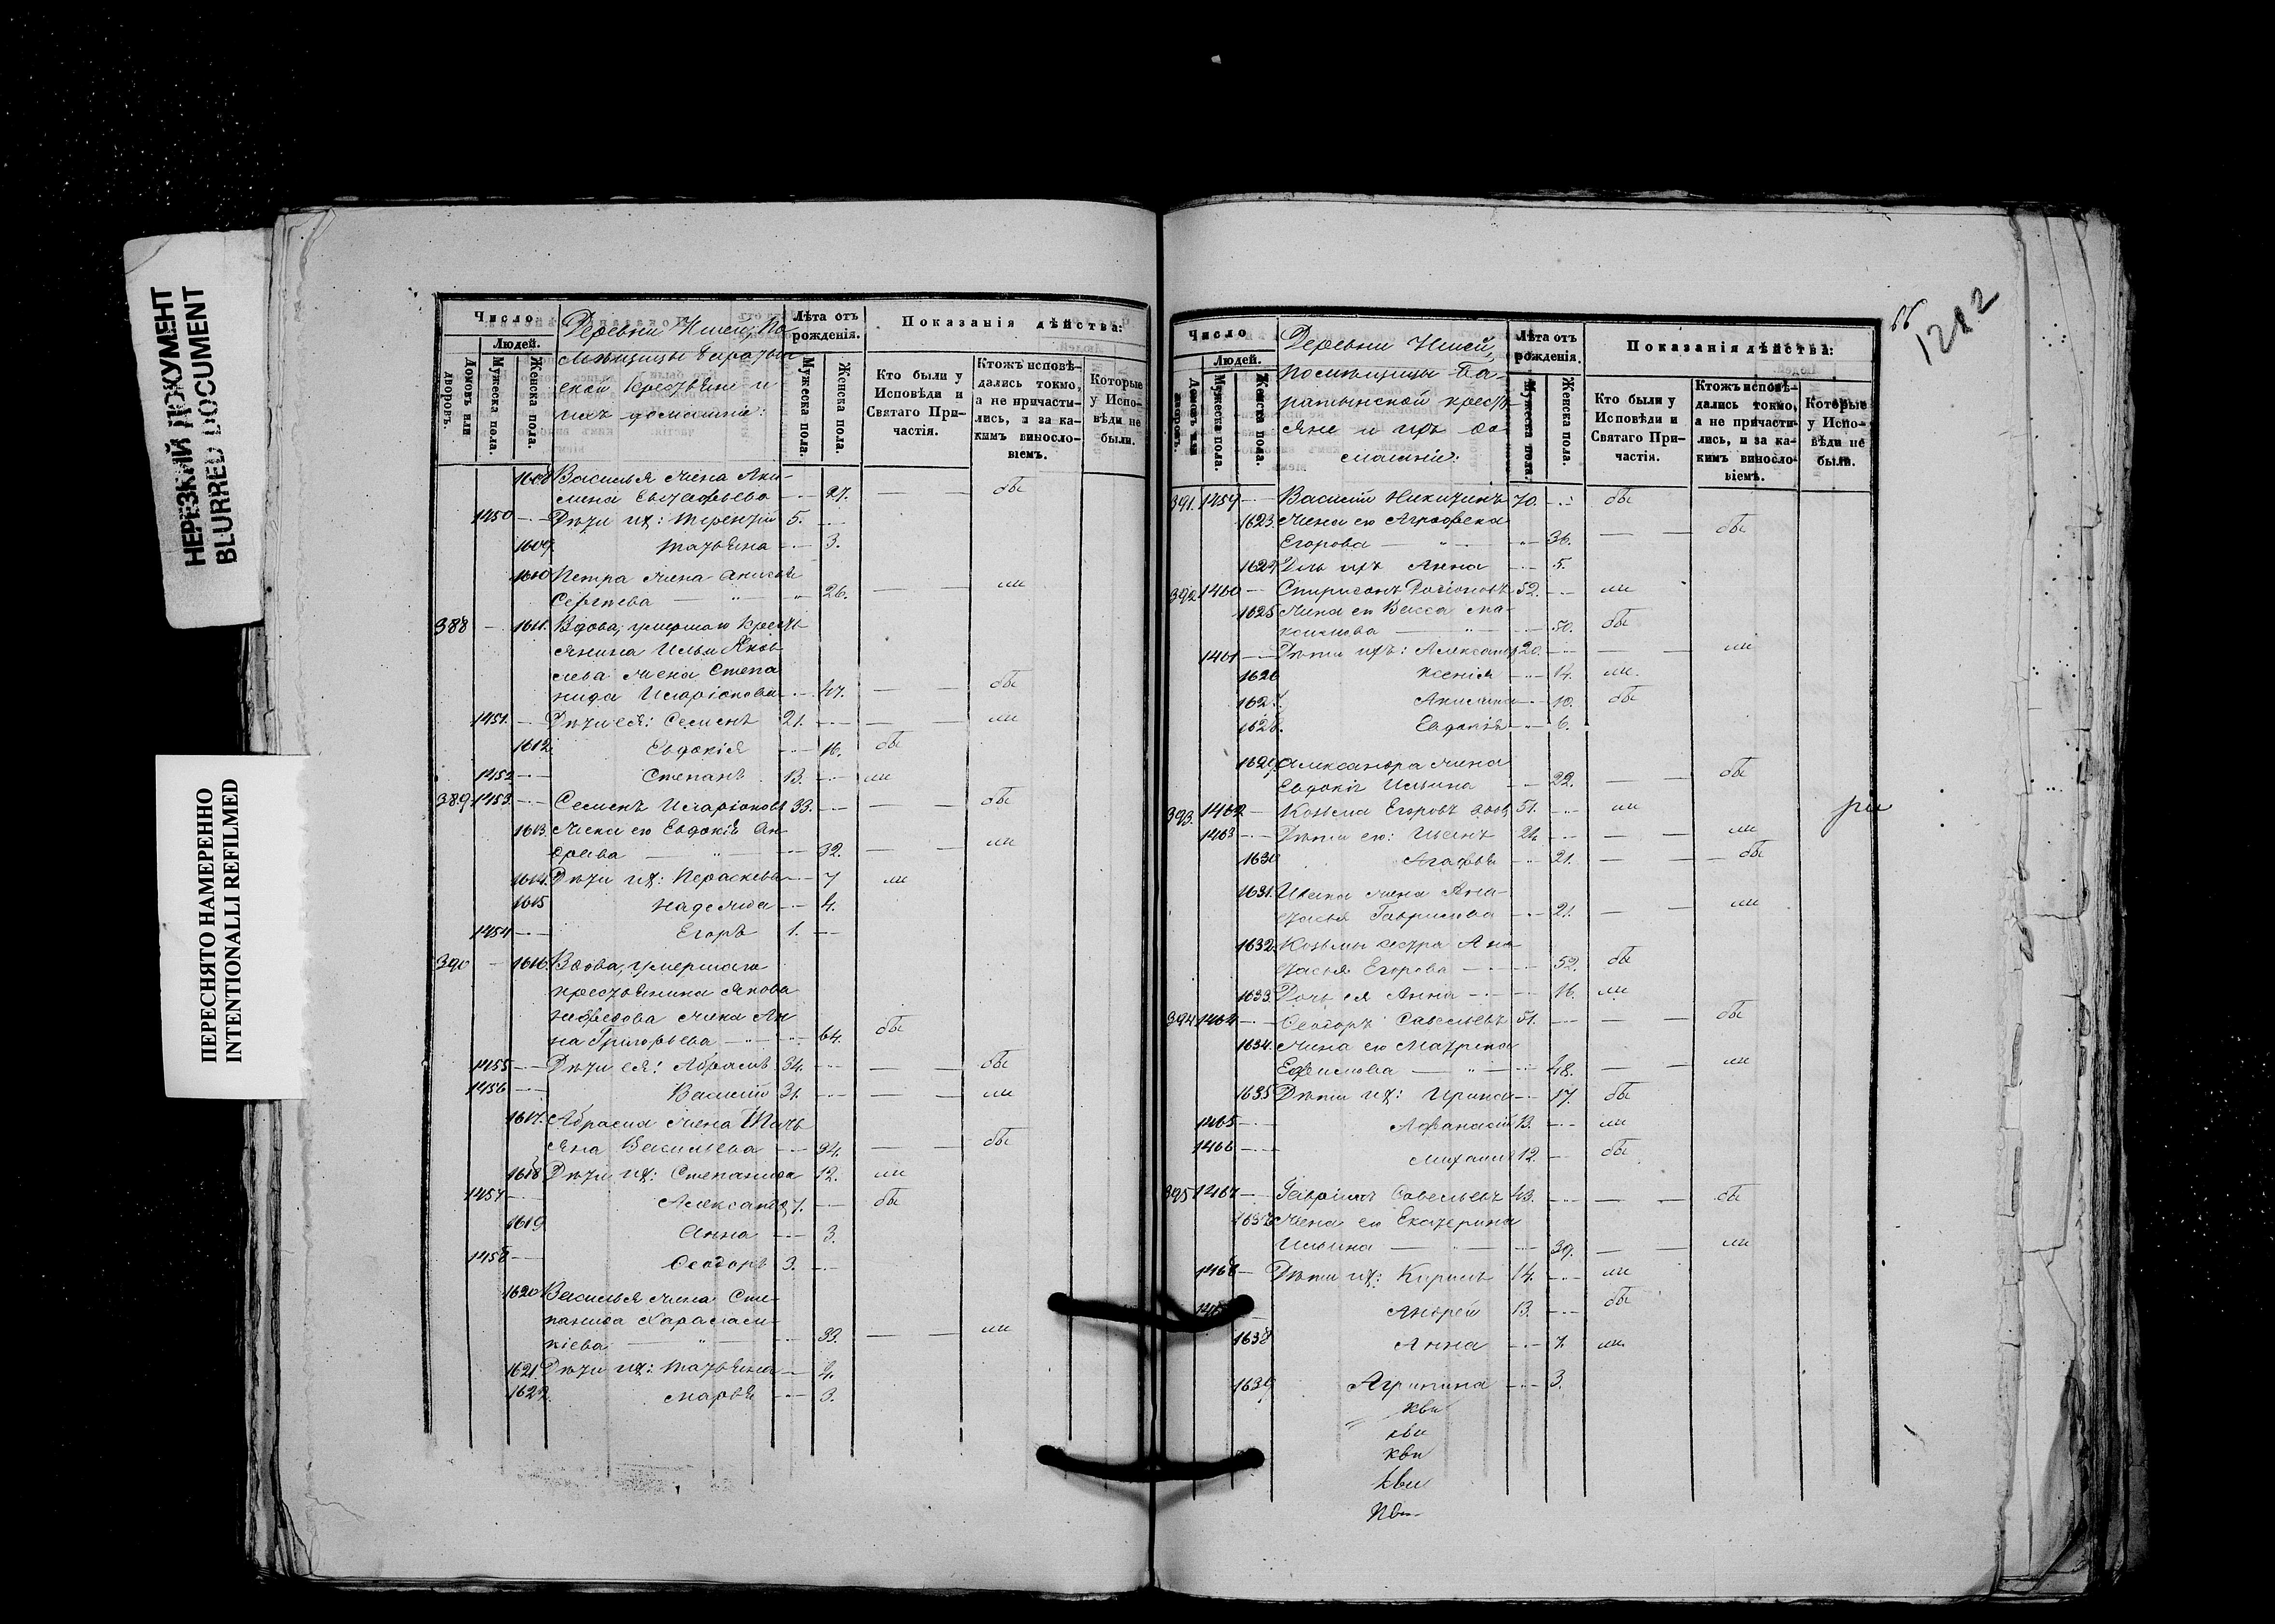 НЕРЕЗКИЙ ДОКУМЕНТ
BLURRED DOCUMENT
ПЕРЕСНЯТО НАМЕРЕННО
INTENTIONALLI REFILMED
Число
Людей.
Домовъ или дворовъ.
Мужеска пола.
Женска пола.
Деревни
крестьяне и
ихъ домашніе:
Лѣта отъ рожденія.
Мужеска пола.
Женска пола.
Показанія дѣйства:
Кто были у Исповѣди и Святаго При-
частія.
Ктожъ исповѣ-
дались токмо,
а не причасти-
лись, и за ка-
кимъ винословіемъ.
Которые у Испо-
вѣди не были.
1608 Василья жена Аки-
лина Евстафьева 27. бы
1450 Дѣти их: Терентій 5.
1609 Татьяна 3.
1610 Петра жена
Сергѣева 26. ли
388 1611. Вдова, умершаго кресть
янина Ильи Яков
лева жена Степа
нида Иларіонова 47. бы
1451. Дѣти ея: Семенъ 21. ли
1612. Евдокія 16. бы
1452 Степанъ 13. ли
389 1453. Семенъ Иларіоновъ 33. бы
1613. Жена его Евдокія Ан
дреева 32. ли
1614. Дѣти их: Параскева 7 ли
1615 Надежда 4.
1454 Егоръ 1.
390 1616. Вдова, умершаго
крестьянина Якова
Нефедова жена Ан
на Григорьева 64. бы
1455 Дѣти ея: Абрамъ 34. бы
1456 Василій 31. ли
1617. Абрама жена Тать
яна Васильева 34. бы
1618 Дѣти их: Степанида 12. ли
1457 Александр 7. бы
1619 Анна 3.
1458 Ѳеодоръ 3.
1620 Василья жена Сте-
панида Харалам-
піева 33. ли
1621. Дѣти их: Татьяна 4.
1622. Марья 3.
66
1212
Число
Людей.
Домовъ или дворовъ.
Мужеска пола.
Женска пола.
Деревни
помѣщицы Ба-
ратынской кресть
яне и ихъ до
машніе:
Лѣта отъ рожденія.
Мужеска пола.
Женска пола.
Показанія дѣйства:
Кто были у Исповѣди и Святаго При-
частія.
Ктожъ исповѣ-
дались токмо,
а не причасти-
лись, и за ка-
кимъ винословіемъ.
Которые у Испо-
вѣди не были.
391. 1459 Василій Никитинъ 70. бы
1623. Жена его Агрофена
Егорова 36. бы
1624 Дочь ихъ Анна 5.
392. 1460 Спиридонъ Родіоновъ 52. ли
1625 Жена его Васса Ма-
ксимова 50. бы
1461 Дѣти ихъ: Александр 20. ли
1626 Ксенія 14. ли
1627. Акилина 10. бы
1628. Евдокія 6.
1629. Александра жена
Евдокія Ильина 22. бы
393. 1462 Козьма Егоровъ вдов 51. ли
1463 Дѣти его: Иванъ 21. ли
1630 Агафья 21. бы
1631. Ивана жена Ана-
стасья Гаврилова 21. ли
1632. Козьмы сестра Ана
стасья Егорова 52. бы
1633. Дочь ея Анна 16. ли
394 1464 Ѳеодоръ Савельевъ 51. бы
1634. Жена его Матрена
Ефимова 48. ли
1635 Дѣти их: Ирина 17. бы
1465 Афанасій 13. ли
1466 Михаилъ 12. бы
395 1467 Гавріилъ Савельевъ 43. бы
1637 Жена его Екатерина
Ильина 39. ли
1468 Дѣти их: Кирилъ 14. ли
Андрей 13. бы
1638 Анна 7. ли
1639 Агрипина 3.